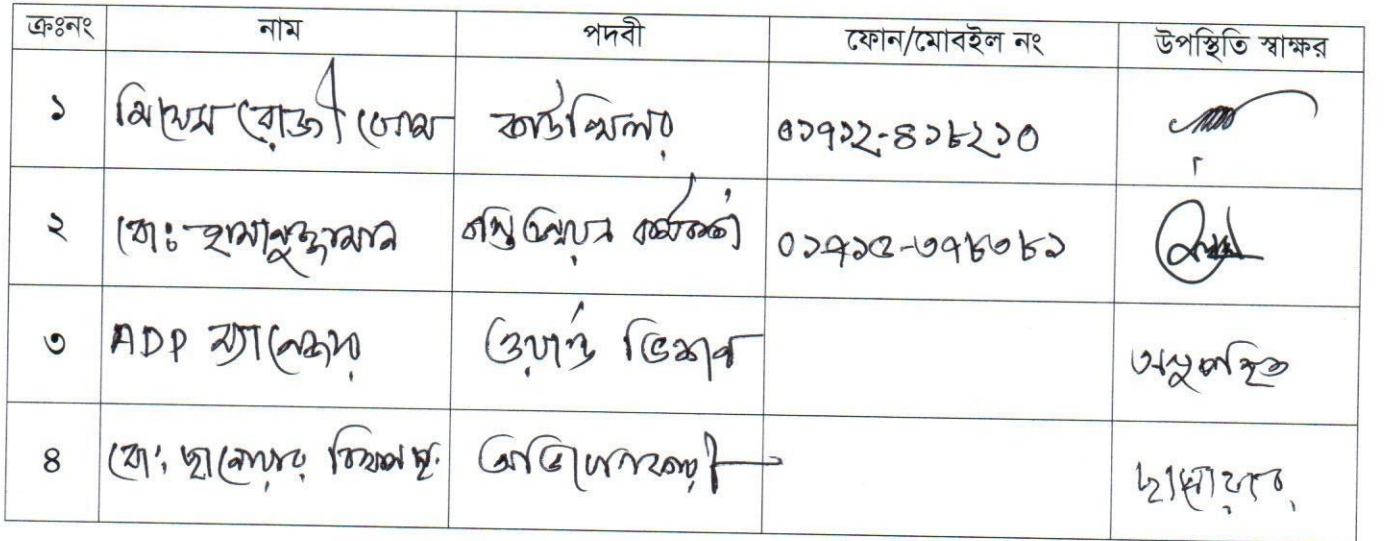 ক্রঃনং নাম পদবী ফোন/মোবাইল নং উপস্থিতি স্বাক্ষর
১ মিসেস রোজী কাউন্সিলর ০১৭১২-৪১৮২১০
২ মোঃ হাসানুজ্জামান বস্তি উন্নয়ন কর্মকর্তা ০১৭১৫-৩৭৮৩৮১
৩ ADP ম্যানেজার ওয়ার্ল্ড ভিশন অনুপস্থিত
৪ মোঃ ছানোয়ার অভিযোগকারী ছানোয়ার